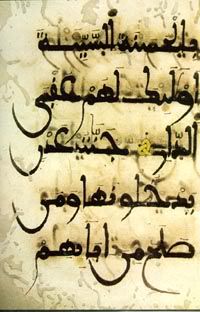 بالحسنة السيئة
اولئك لهم عقبى
الدار جنت عدن
يدخلونها ومن
صلح من ابائهم